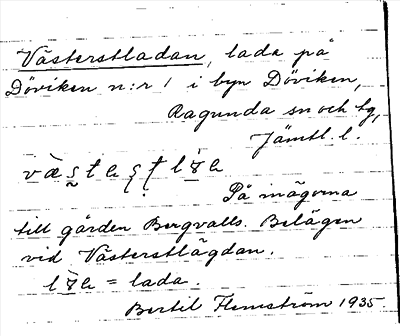 Västerstladan, lada på
Döviken n:r 1 i byn Döviken,
Ragunda sn och tg,
Jämtl. l.
På mägorna
till gården Bergvalls. Belägen
vid Västerstlägdan.
= lada.
Bertil Flemström 1935